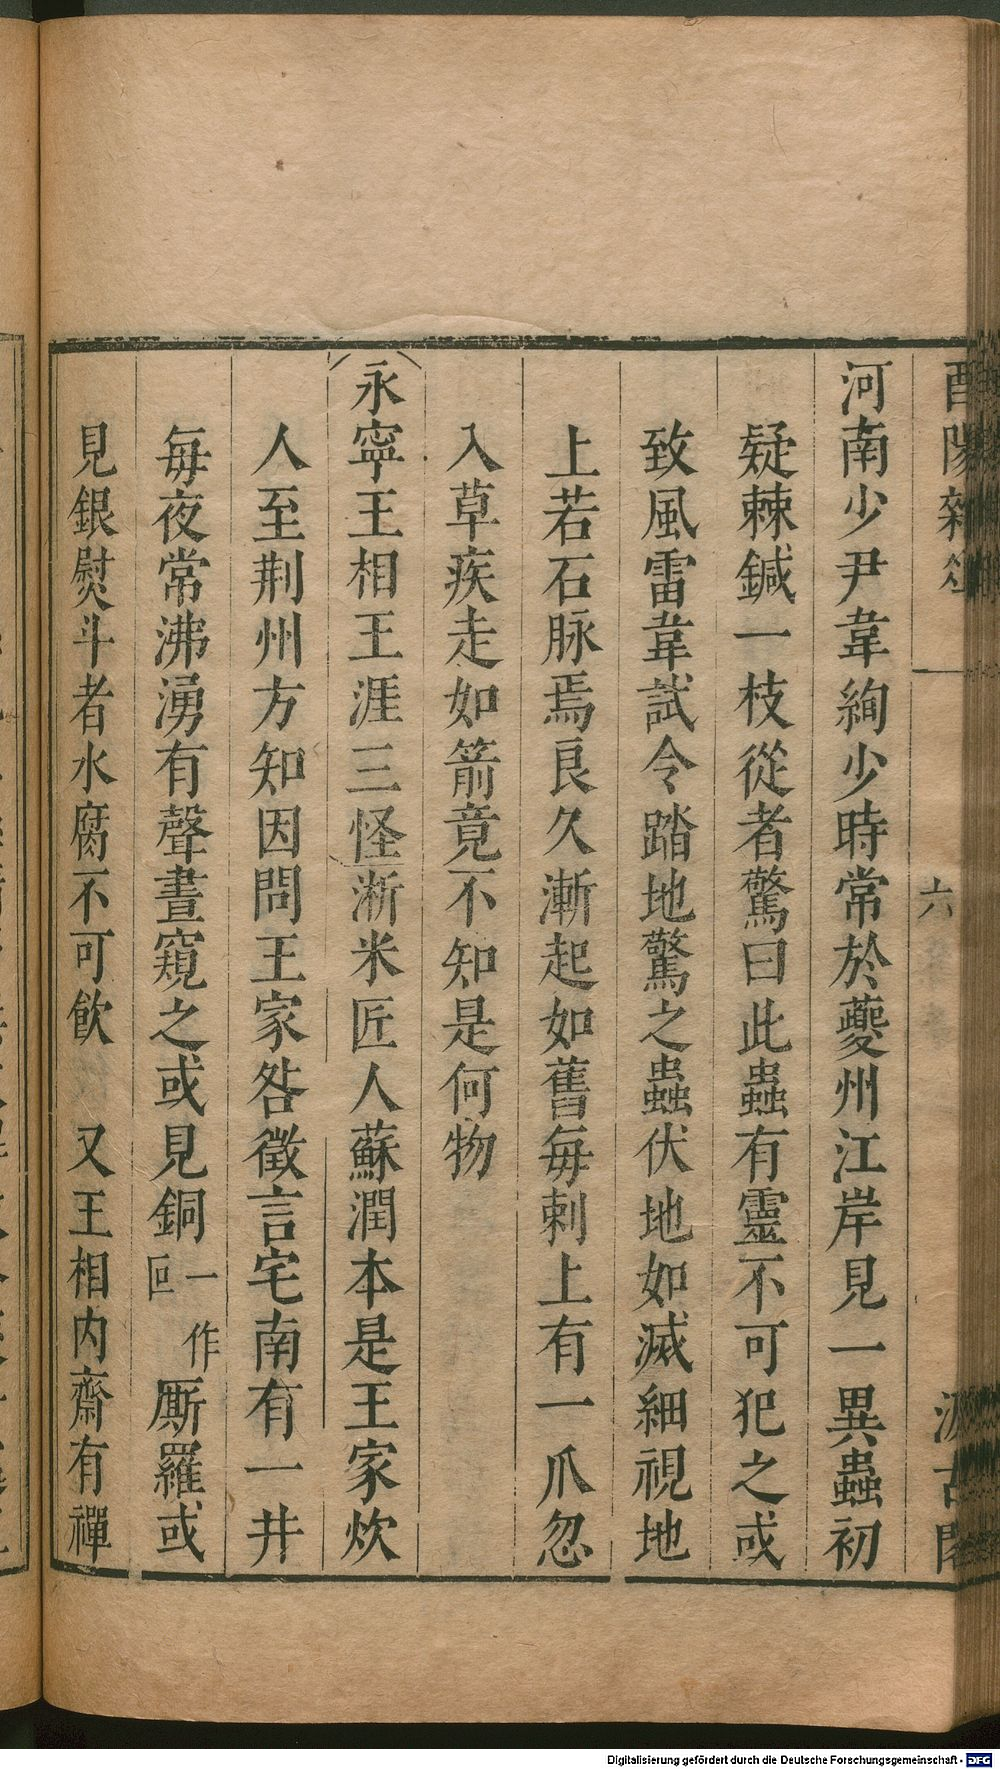 酉陽雜俎 六 汲古閣
河南少尹韋絢少時常於夔州江岸見一異蟲初
疑棘鍼一枝從者驚曰此蟲有靈不可犯之或
致風雷韋試令踏地驚之蟲伏地如滅細視地
上若石脉焉良久漸起如舊每刺上有一爪忽
入草疾走如箭竟不知是何物
永寧王相王涯三怪淅米匠人蘇潤本是王家炊
人至荆州方知因問王家咎徵言宅南有一井
每夜常沸湧有聲晝窺之或見銅一作叵厮羅或
見銀熨斗者水腐不可飲 又王相內齋有禪
Digitalisierung gefördert durch die Deutsche Forschungsgemeinschaft - DFG